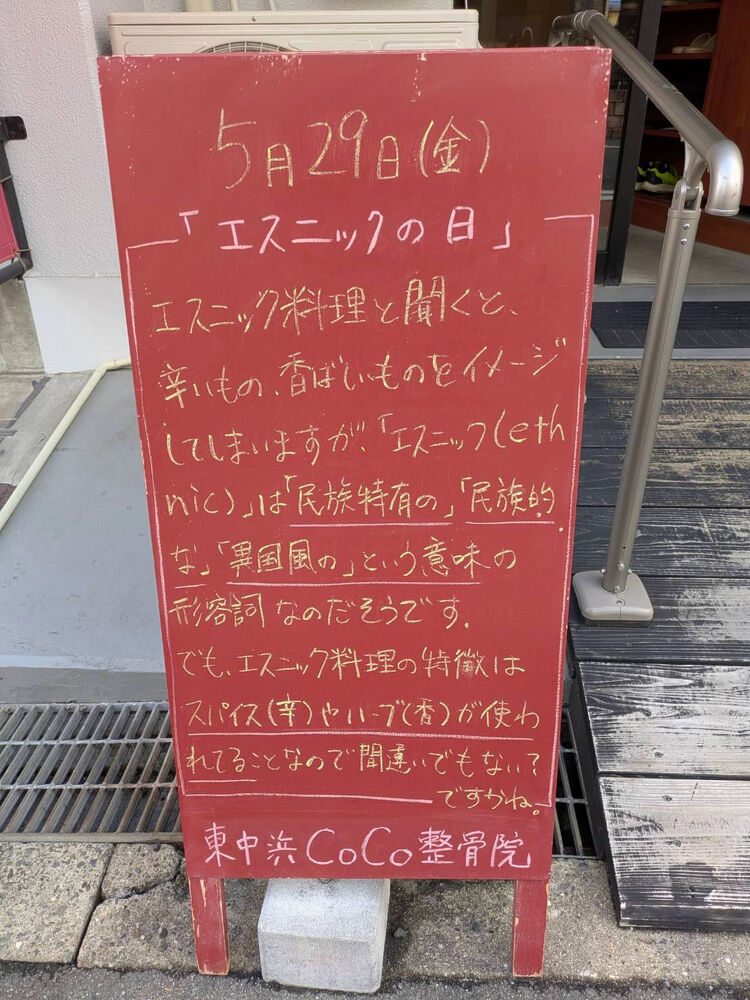 5月29日(金)
「エスニックの日」
エスニック料理と聞くと、
辛いもの、香ばしいものをイメージ
してしまいますが、「エスニック(eth
nic)」は「民族特有の」「民族的
な」「異国風の」という意味の
形容詞なのだそうです.
でも、エスニック料理の特徴は
スパイス(辛)やハーブ(香)が使わ
れてることなので間違いでもない?
ですかね。
東中浜CoCo整骨院